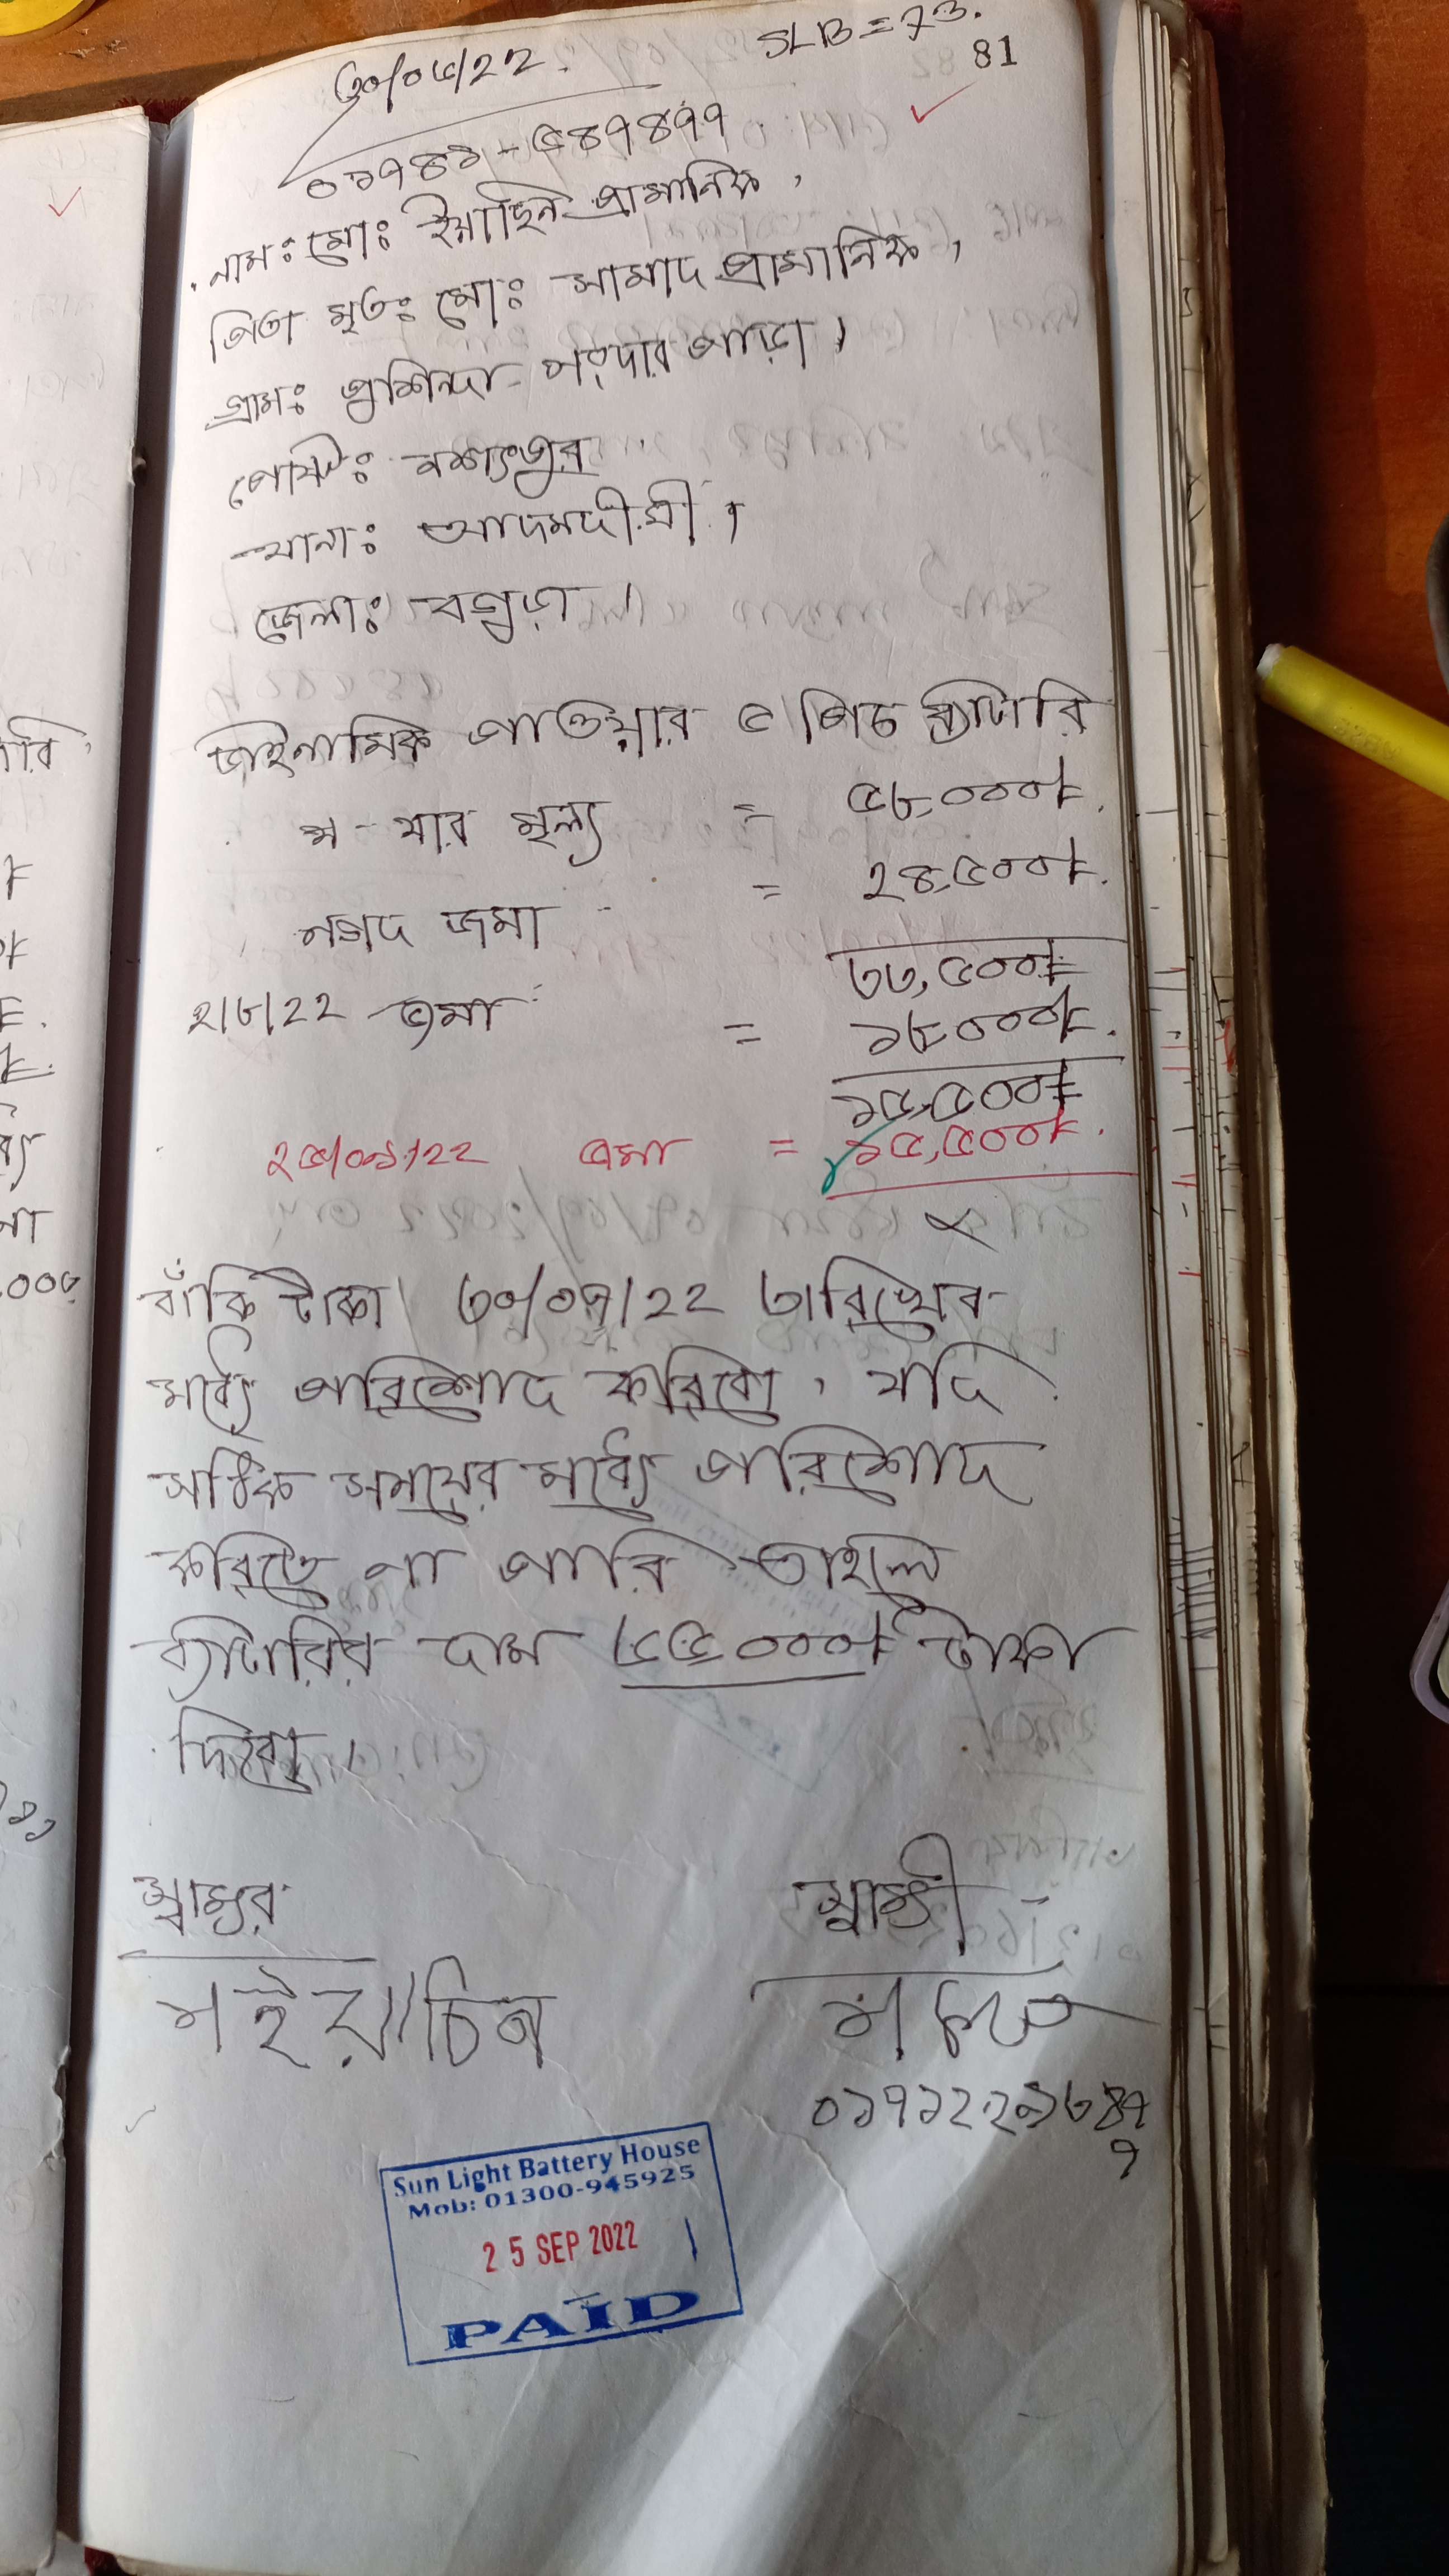 SLB = 73.
81
৩০/০৬/22.
০১৭৪১-৫৪৭৪৭৭
নাম: মোঃ ইয়াছিন প্রামানিক,
পিতা মৃত: মোঃ সামাদ প্রামানিক,
গ্রাম:
পোষ্ট:
থানা: আদমদীঘী।
জেলা: বগুড়া।
ডাইনামিক পাওয়ার ৫ পিচ ব্যাটারি
যার মূল্য = ৫৮,০০০/-
নগদ জমা = ২৪,৫০০/-
৩৩,৫০০/=
২/৮/22 জমা = ১৮০০০/-
১৫,৫০০/=
২৫/০৯/22 জমা = ১৫,৫০০/-
বাঁকি টাকা ৩০/০৭/22 তারিখের
মধ্যে পরিশোদ করিবো, যদি
সঠিক সময়ের মধ্যে পরিশোদ
করিতে না পারি তাহলে
ব্যাটারির দাম ৬৫০০০/- টাকা
দিবো,
স্বাক্ষর
স্বাক্ষী
মইয়াচিন
Sun Light Battery House
Mob: 01300-945925
25 SEP 2022
PAID